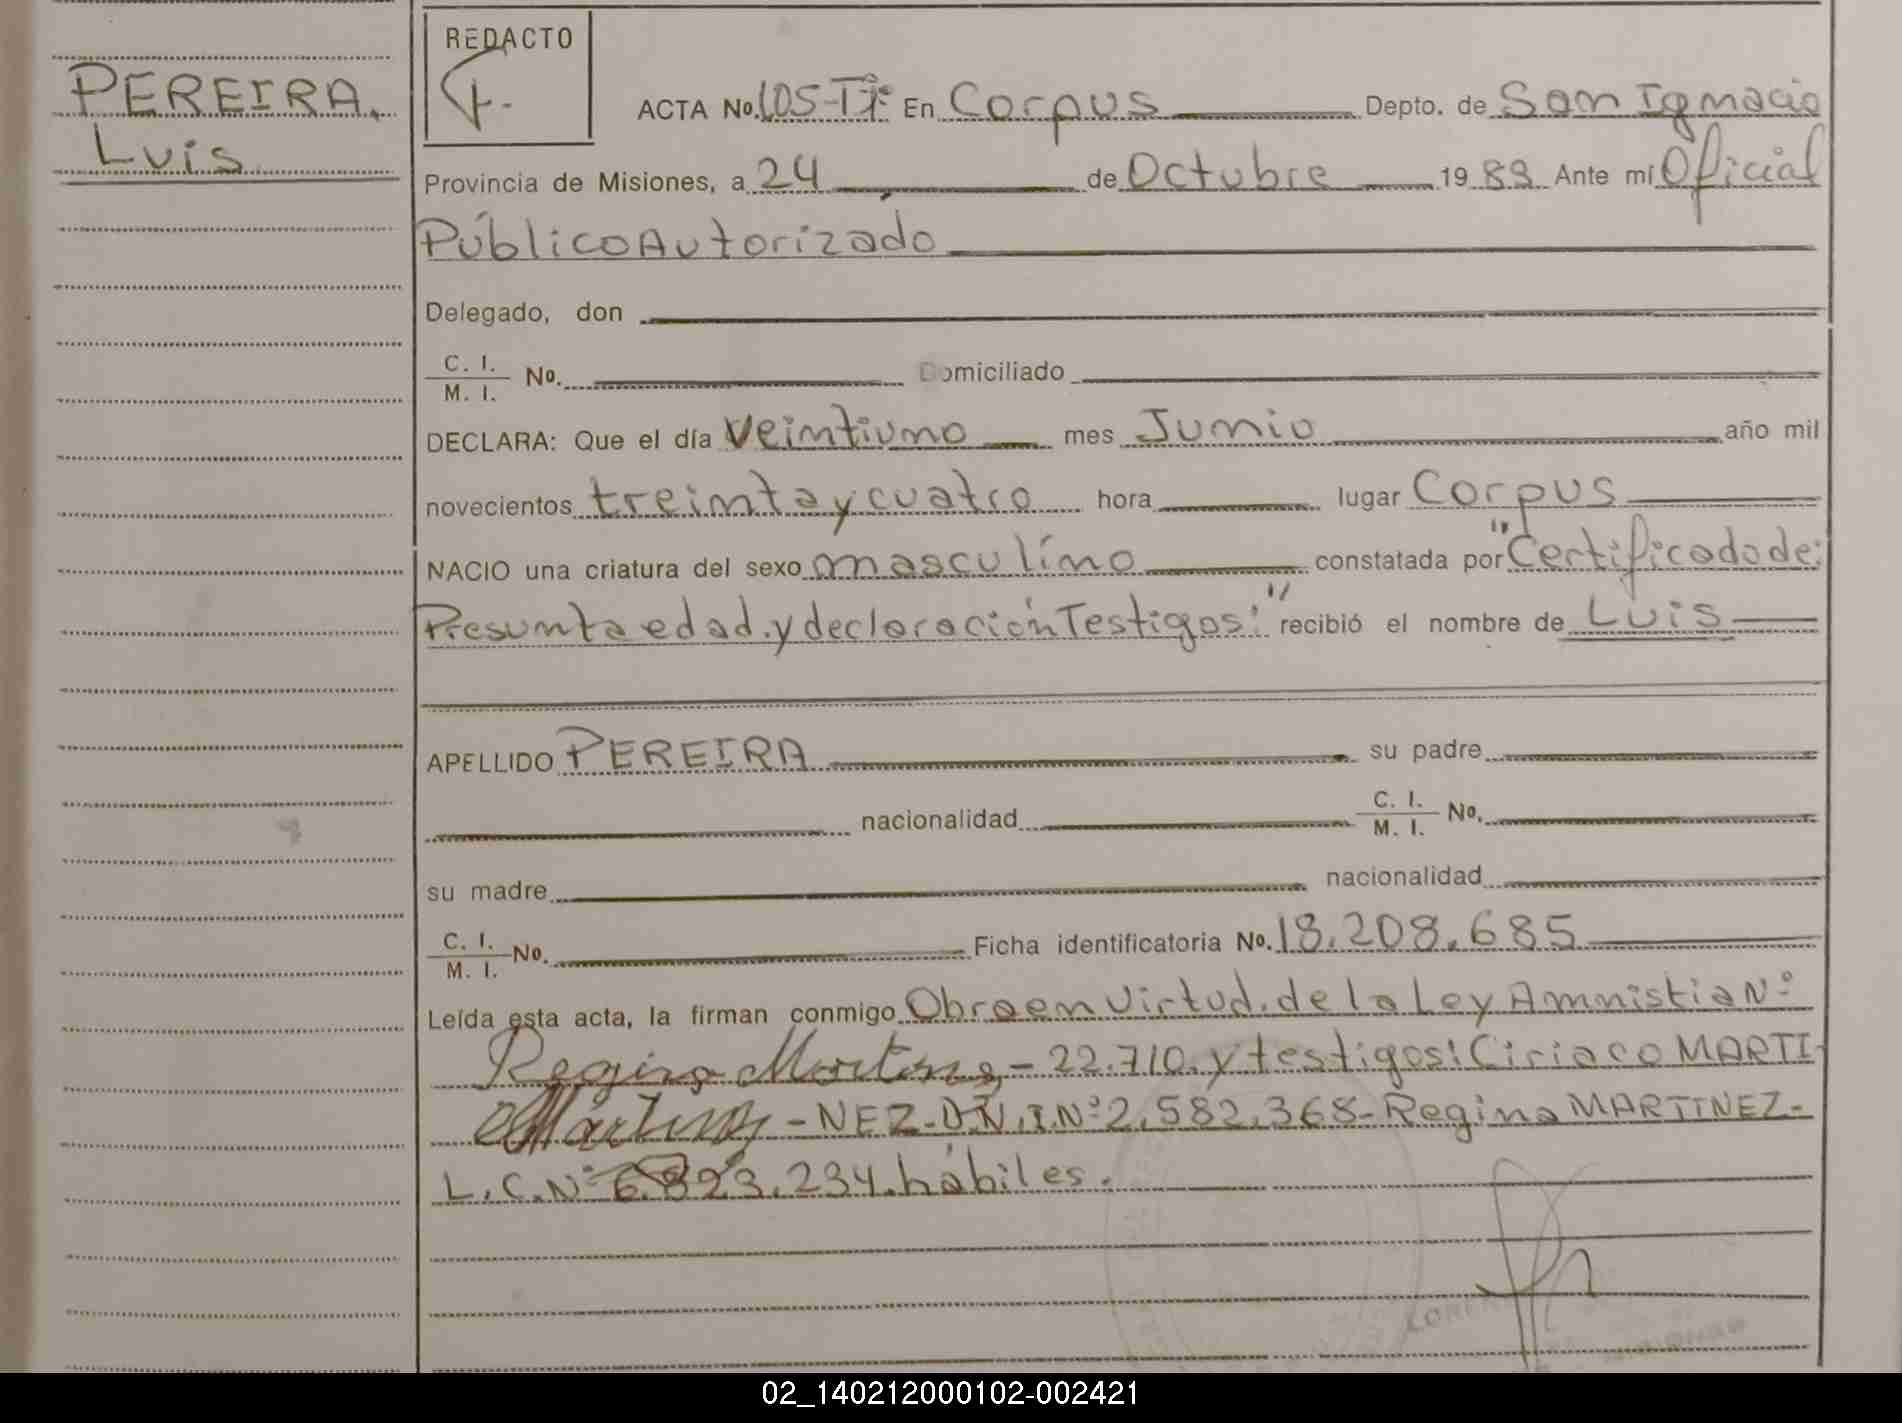 PEREIRA,
Luis
REDACTO
ACTA No. 105-Tº Iº En Corpus Depto. de San Ignacio
Provincia de Misiones, a 24 de Octubre 1989 Ante mí Oficial
Público Autorizado
Delegado, don
C. I.
M. I. No. Domiciliado
DECLARA: Que el día veintiuno mes Junio año mil
novecientos treinta y cuatro hora lugar Corpus
NACIO una criatura del sexo masculino constatada por "Certificado de:
Presunta edad. y declaración Testigos:" recibió el nombre de Luis
APELLIDO PEREIRA su padre
nacionalidad C. I.
M. I. No.
su madre nacionalidad
C. I.
M. I. No. Ficha identificatoria No. 18.208.685
Leída esta acta, la firman conmigo Obra en Virtud. de la Ley Amnistia Nº
Regina Martinez - 22.710. y testigos: Ciriaco MARTI-
Martinez - NEZ - D.N.I. Nº 2.582.368 - Regina MARTINEZ -
L.C. Nº 6.823.234. hábiles.
02_140212000102-002421